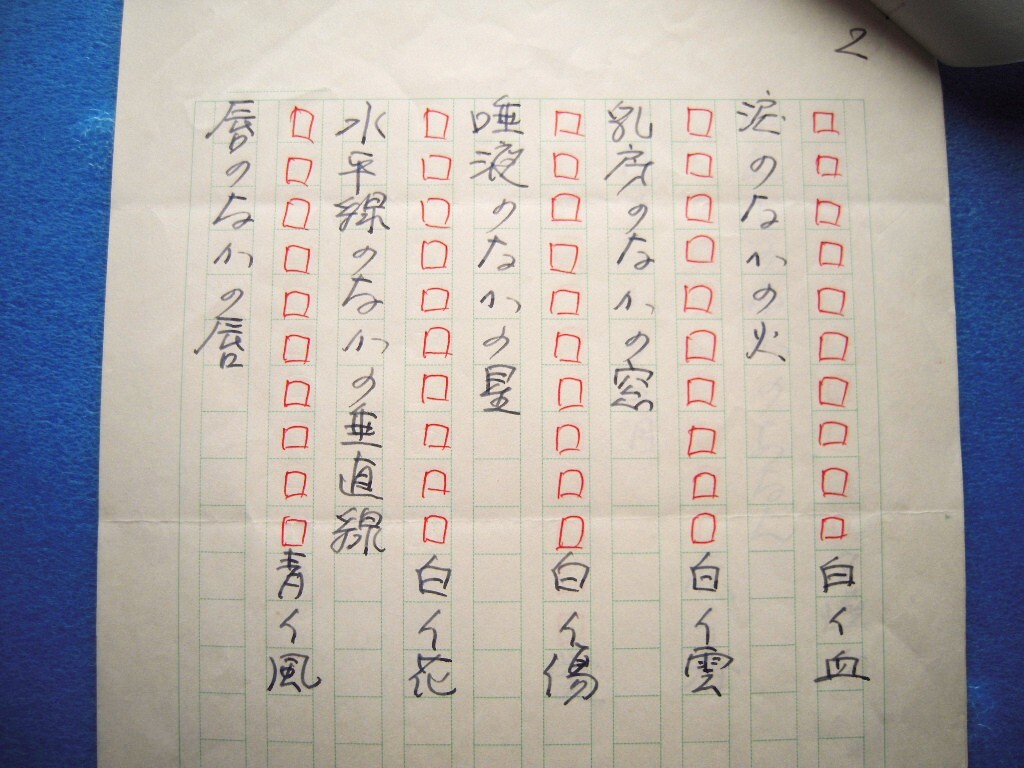 2
□□□□□□□□□□白イ血
涙のなかの火
□□□□□□□□□□白イ雲
乳房のなかの窓
□□□□□□□□□□白イ傷
唾液のなかの星
□□□□□□□□□□白イ花
水平線のなかの垂直線
□□□□□□□□□□青イ風
唇のなかの唇